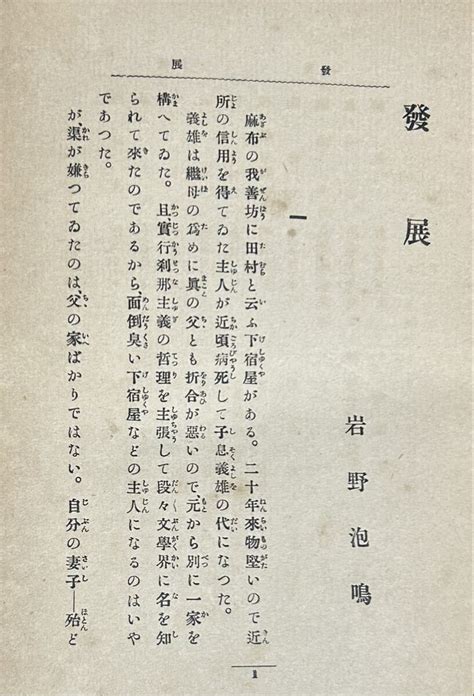 發展
發展
岩野泡鳴
一
麻布の我善坊に田村と云ふ下宿屋がある。二十年來物堅いので近
所の信用を得てゐた主人が近頃病死して子息義雄の代になつた。
義雄は繼母の爲めに眞の父とも折合が惡いので、元から別に一家を
構へてゐた。且、實行刹那主義の哲理を主張して段々文學界に名を知
られて來たのであるから、面倒臭い下宿屋などの主人になるのはいや
であつた。
が、渠が嫌つてゐたのは、父の家ばかりではない。自分の妻子―殆ど
1